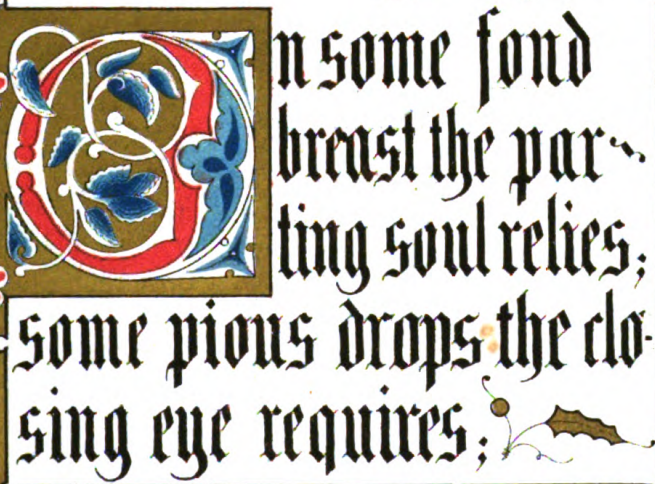 On some fond
breast the par~
ting soul relies;
some pious drops the clo-
sing eye requires;